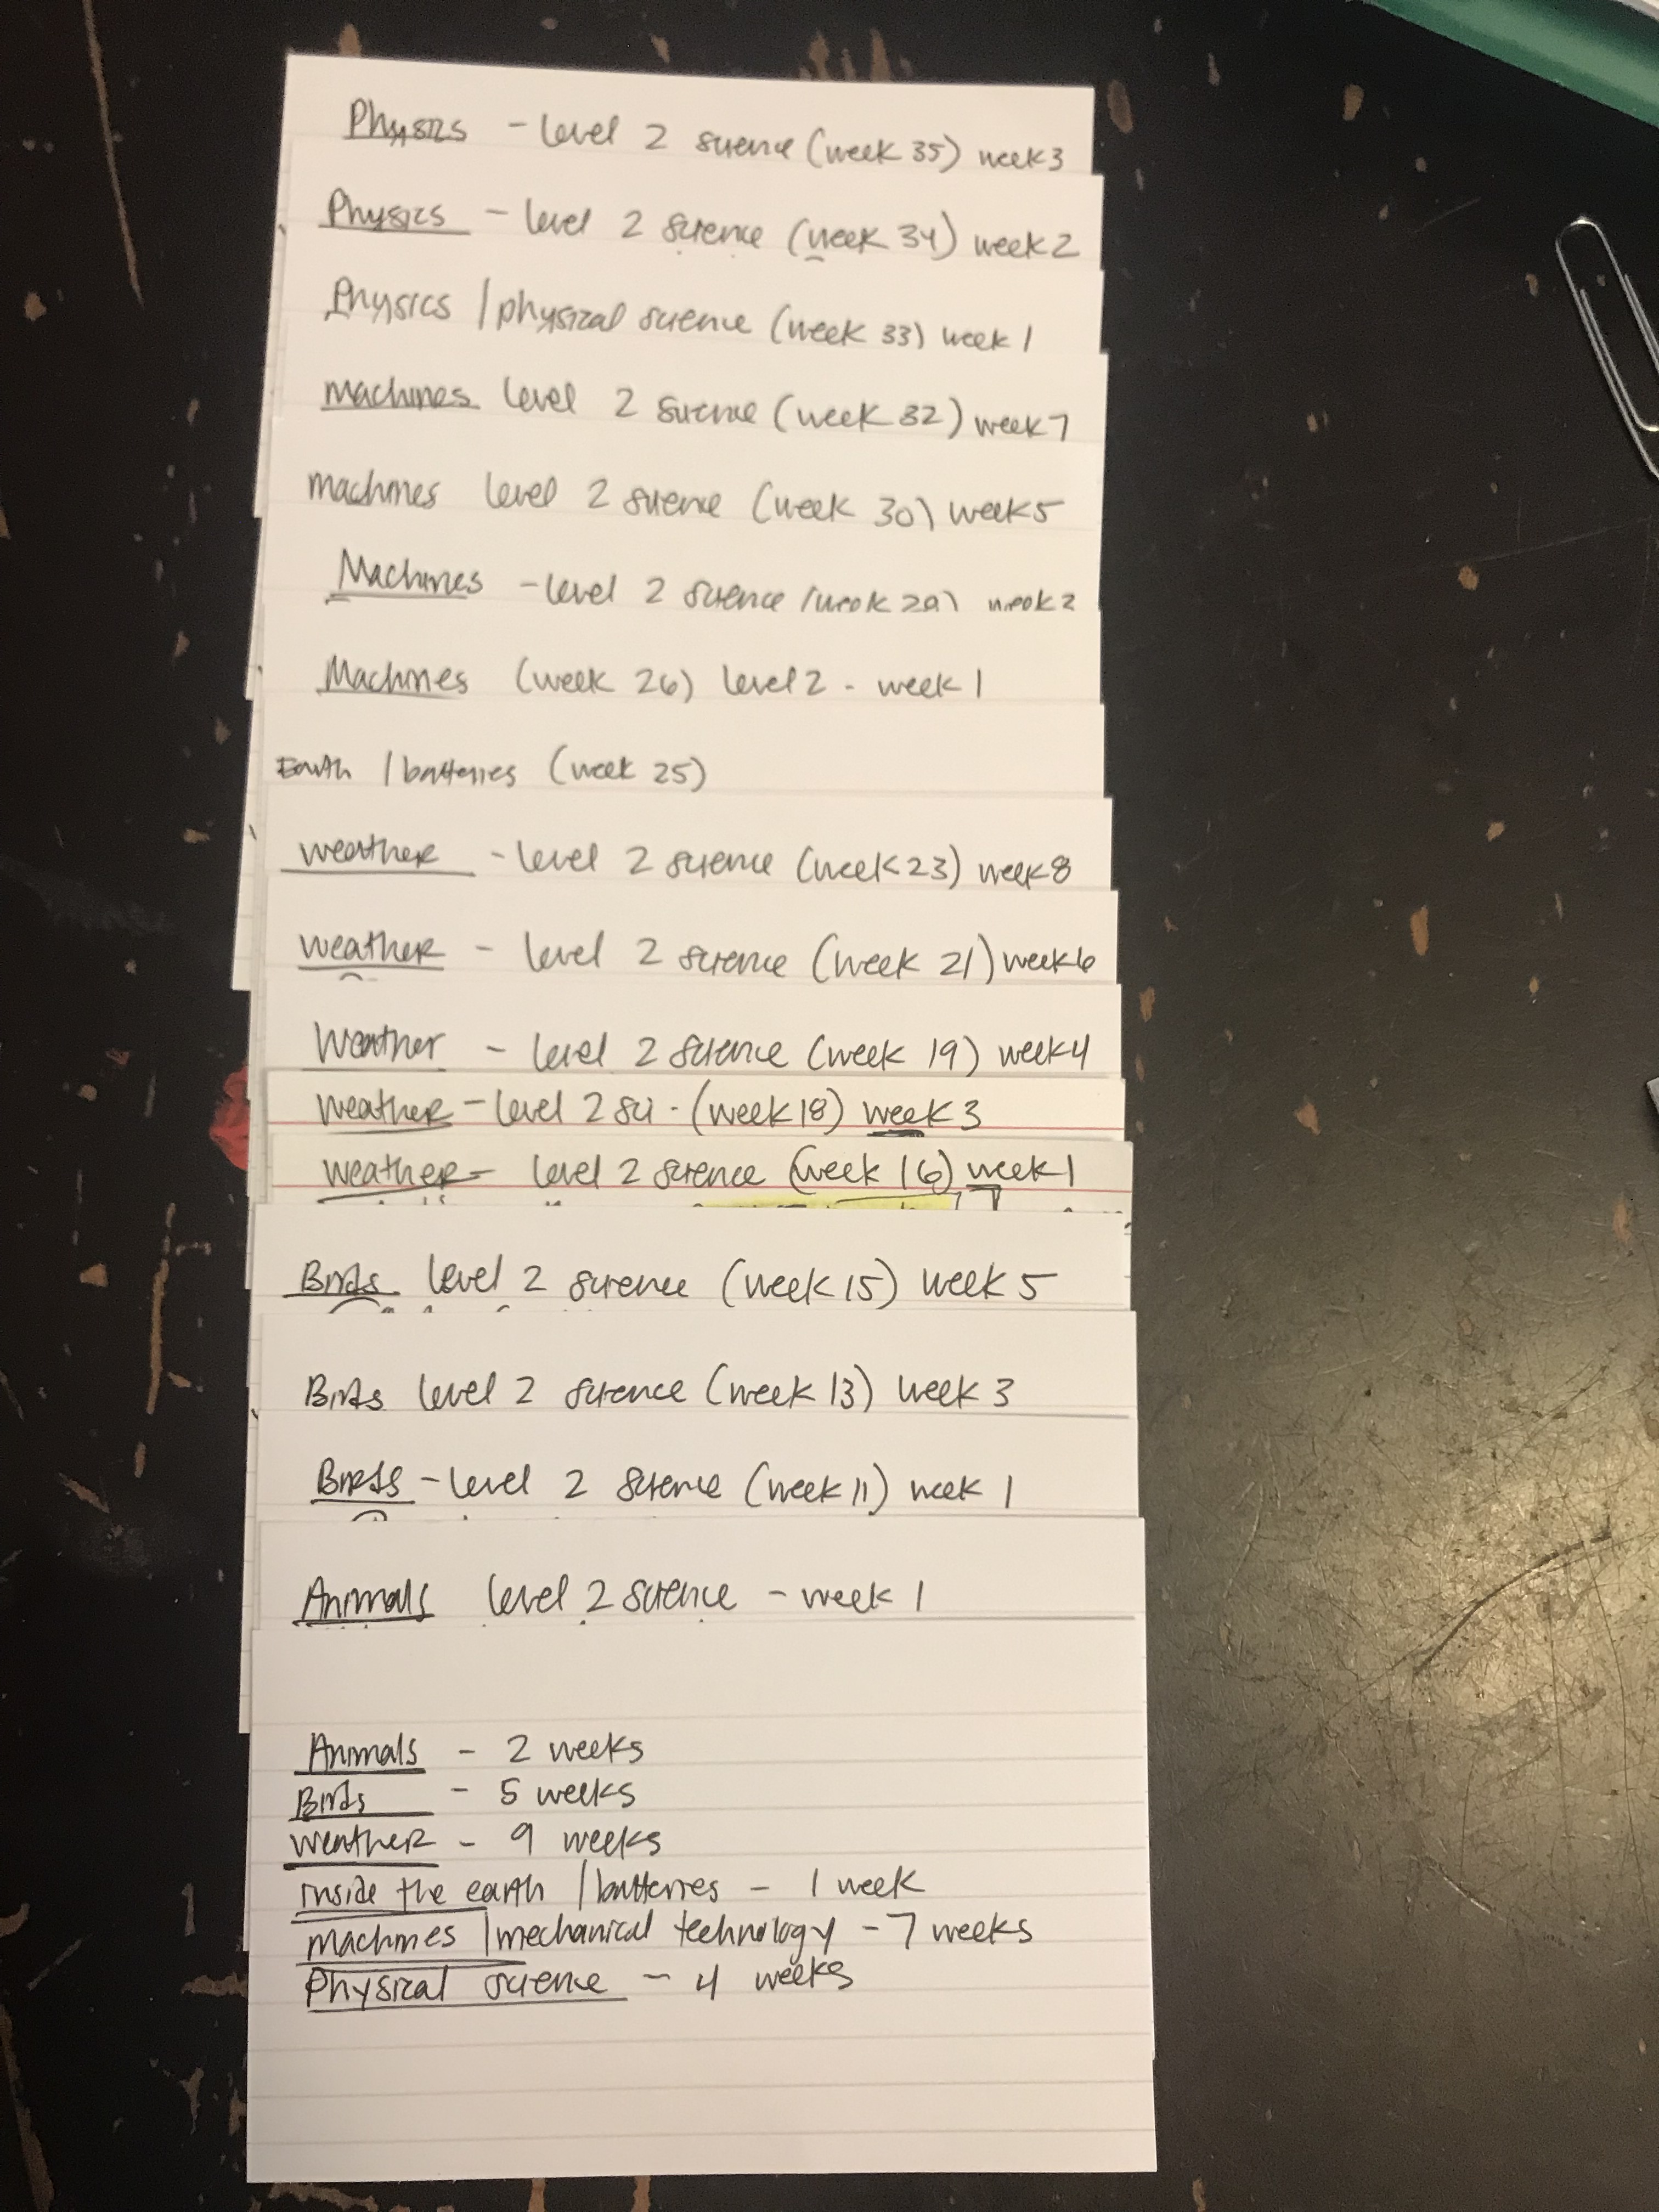 Physics - level 2 science (week 35) week 3
Physics - level 2 science (week 34) week 2
Physics / physical science (week 33) week 1
machines level 2 science (week 32) week 7
machines level 2 science (week 30) week 5
Machines - level 2 science (week 29) week 2
Machines (week 26) level 2 - week 1
Earth / batteries (week 25)
weather - level 2 science (week 23) week 8
weather - level 2 science (week 21) week 6
Weather - level 2 science (week 19) week 4
weather - level 2 sci. (week 18) week 3
weather - level 2 science (week 16) week 1
Birds level 2 science (week 15) week 5
Birds level 2 science (week 13) week 3
Birds - level 2 science (week 11) week 1
Animals level 2 science - week 1
Animals - 2 weeks
Birds - 5 weeks
weather - 9 weeks
inside the earth / batteries - 1 week
machines / mechanical technology - 7 weeks
Physical science - 4 weeks